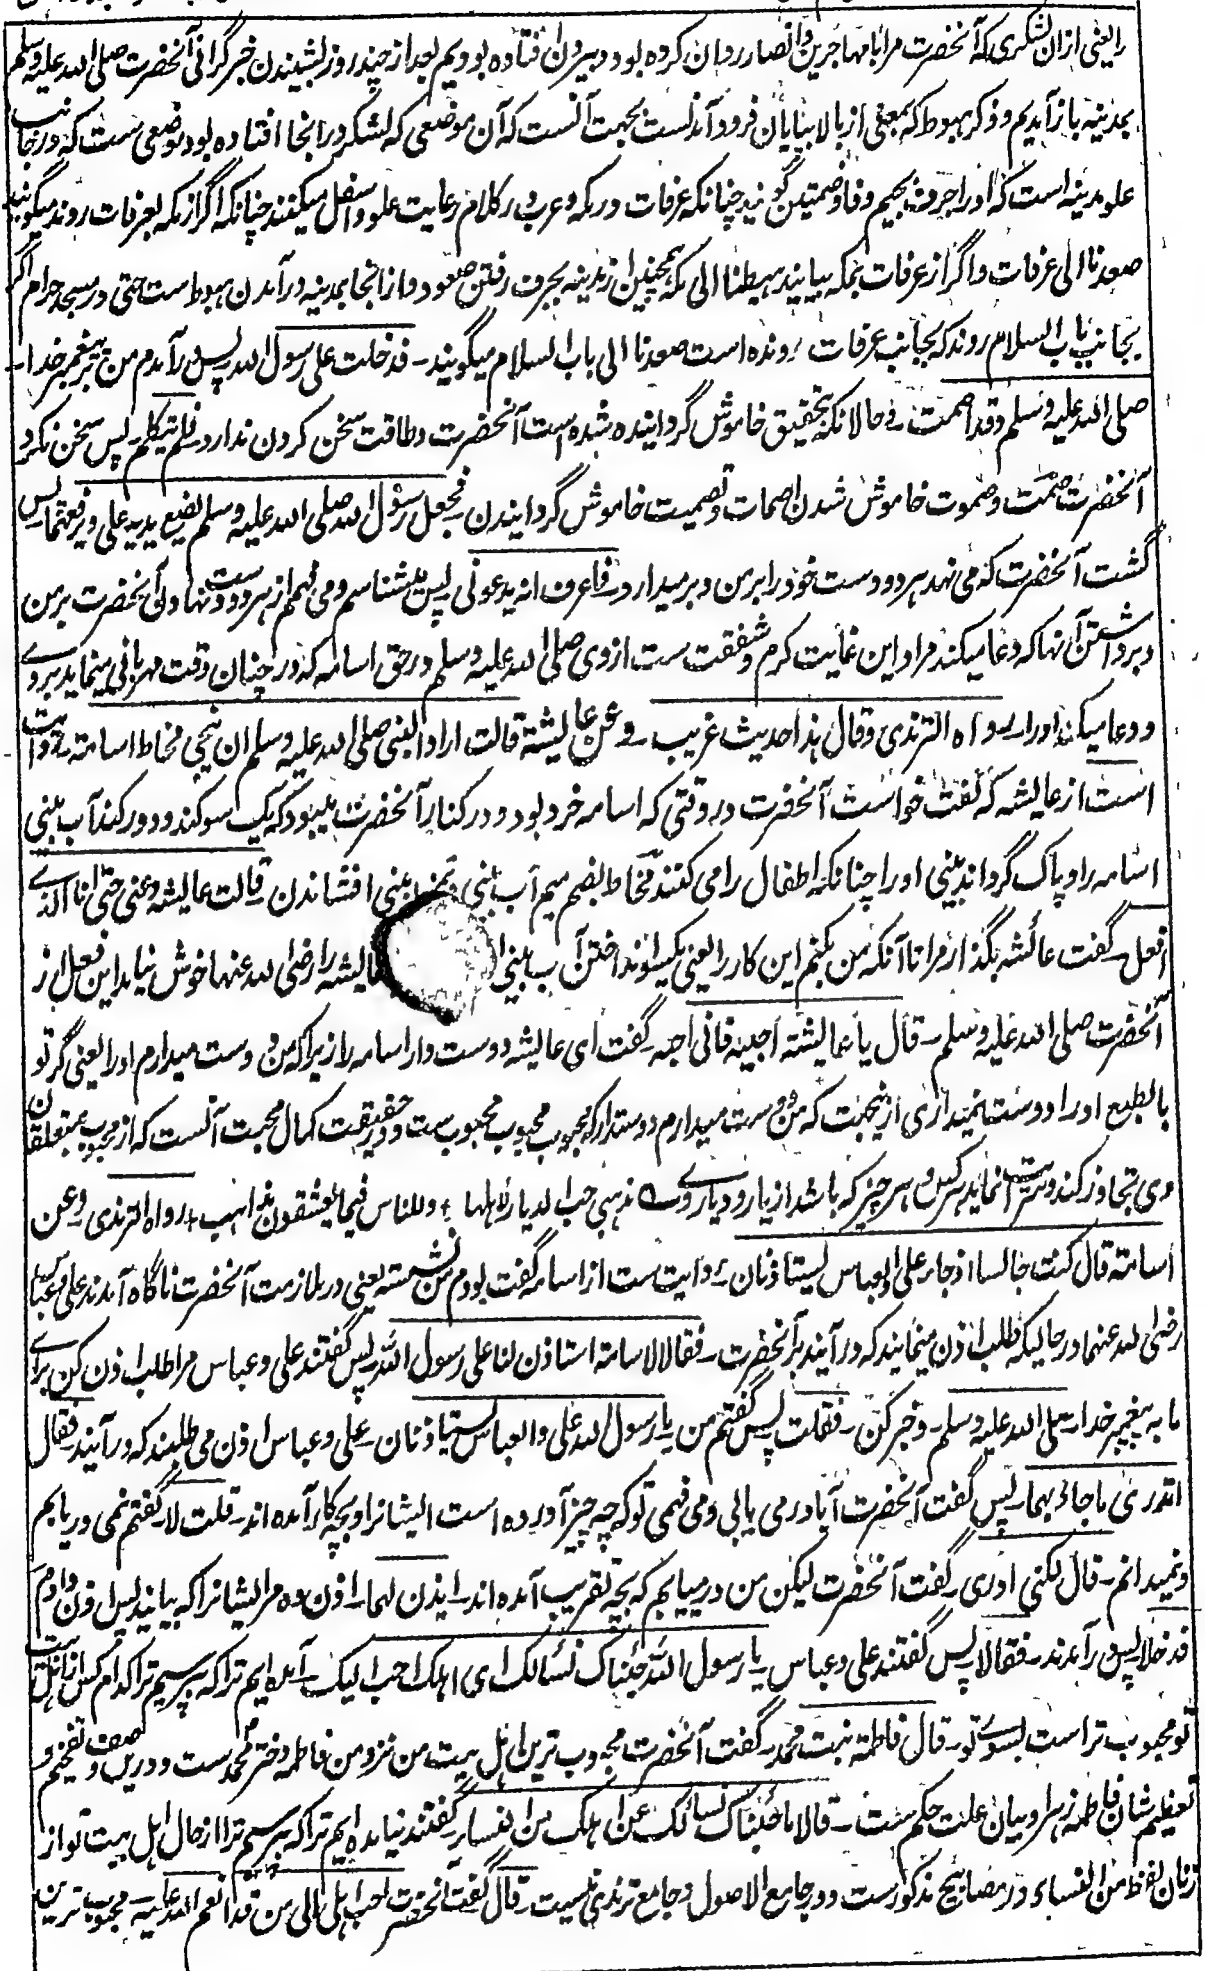 را یعنی ازان لشکری که آنحضرت مرا با مهاجرین و انصار روان کرده بود و بیرون افتاده بودیم بعد از چند روز بشنیدن خبر گرانی آنحضرت صلی الله علیه وسلم
بمدینه باز آمدیم و ذکر هبوط که بمعنی از بالا بپایان فرود آمدنست بجهت آنست که آن موضعی که لشکر در انجا افتاده بود موضعی ست که در جانب
علو مدینه است که او را جرف بجیم و فا و ضمتین گویند چنانکه عرفات در مکه و عرب در کلام رعایت علو و اسفل میکنند چنانکه اگر از مکه بعرفات روند میگویند
صعدنا الی عرفات و اگر از عرفات بمکه بیایند هبطنا الی مکه همچنین از مدینه بجرف رفتن صعود و از انجا بمدینه در آمدن هبوط است حتی در مسجد حرام اگر
بجانب باب السلام روند که بجانب عرفات رونده است صعدنا الی باب السلام میگویند ـ فدخلت علی رسول الله پس در آمدم من بر پیغمبر خدا ـ
صلی الله علیه وسلم وقد اصمت ـ حالانکه بتحقیق خاموش گردانیده شده است آنحضرت و طاقت سخن کردن ندارد فلم یتکلم ـ پس سخن نکرد
آنحضرت صمت و صموت خاموش شدن اصمات و تصمیت خاموش گردانیدن ـ فجعل رسول الله صلی الله علیه وسلم یضع یدیه علی ویرفعهما پس
گشت آنحضرت که می نهد هر دو دست خود را بر من و بر میدارد ـ فاعرف انه یدعو لی پس میشناسم و می فهمم از هر دو دست نهادن آنحضرت بر من
و برداشتن آنها که دعا میکند مرا و این غایت کرم و شفقت ست از وی صلی الله علیه وسلم در حق اسامه که در چنان وقت مهربانی مینماید بر وے
و دعا میکند او را ـ رواه الترمذی وقال هذا حدیث غریب ـ وعن عایشة قالت اراد النبی صلی الله علیه وسلم ان ینحی مخاط اسامة ـ روایت
است از عایشه که گفت خواست آنحضرت در وقتی که اسامه خرد بود و در کنار آنحضرت میبود که یک سو کند و دور کند آب بینی
اسامه را و پاک گرداند بینی او را چنانکه اطفال را می کنند مخاط بضم میم آب بینی و بینی افشاندن قالت عایشه دعنی حتی انا الذے
افعل ـ گفت عائشه بگذار مرا تا آنکه من بکنم این کار را یعنی یکسو انداختن آب بینی عایشه را رضی الله عنها خوش نیاید این فعل از
آنحضرت صلی الله علیه وسلم ـ قال یا عایشة احبیه فانی احبه ـ گفت ای عایشه دوست دار اسامه را زیرا که من دوست میدارم او را یعنی گر تو
بالطبع او را دوست نمیداری ازینجهت که من دوست میدارم دوستدار که محبوب محبوب محبوبست و در حقیقت کمال محبت آنست که از محبوب بمتعلقان
وی تجاوز کند و سرایت نماید بهر کس و هر چیز که باشد از یار و دیار وے ٥ مذهبی حب الدیار لاهلها ÷ وللناس فیما یعشقون مذاهب ÷ رواه الترمذی وعن
اسامة قال کنت جالسا اذ جاء علی والعباس یستاذنان ـ روایت ست از اسامه گفت بودم من نشسته یعنی در ملازمت آنحضرت ناگاه آمدند علی و عباس
رضی الله عنهما در حالیکه طلب اذن مینمایند که در آیند بر آنحضرت ـ فقالا لاسامة استاذن لنا علی رسول الله پس گفتند علی و عباس مر طلب اذن کن براے
ما به پیغمبر خدا ـ صلی الله علیه وسلم ـ و خبر کن ـ فقلت پس گفتم من یا رسول الله علی والعباس یستاذنان ـ علی و عباس اذن می طلبند که در آیند فقال
اتدری ما جاء بهما ـ پس گفت آنحضرت آیا در می یابی و می فهمی تو که چه چیز آورده است ایشانرا و بچه کار آمده اند ـ قلت لا ـ گفتم نمی دریابم
و نمیدانم ـ قال لکنی ادری ـ گفت آنحضرت لیکن من در می یابم که بچه تقریب آمده اند ـ ایذن لهما ـ اذن ده مر ایشانرا که بیایند پس اذن دادم
فدخلا پس در آمدند ـ فقالا پس گفتند علی و عباس ـ یا رسول الله جئناک نسألک ای اهلک احب الیک ـ آمده ایم ترا که بپرسیم ترا کدام کس از اهل بیت
تو محبوب تر است بسوے تو ـ قال فاطمة بنت محمد ـ گفت آنحضرت محبوب ترین اهل بیت من نزد من فاطمه دختر محمد ست و درین وصف تفخیم و
تعظیم شان فاطمه زهرا و بیان علت حکم ست ـ قالا ما جئناک نسألک عن اهلک من النساء گفتند نیامده ایم ترا که بپرسیم ترا از حال اهل بیت تو از
زنان لفظ من النساء در مصابیح مذکور ست و در جامع الاصول و جامع ترمذی نیست ـ قال گفت آنحضرت احب اهلی الی من قد انعم الله علیه ـ محبوب ترین